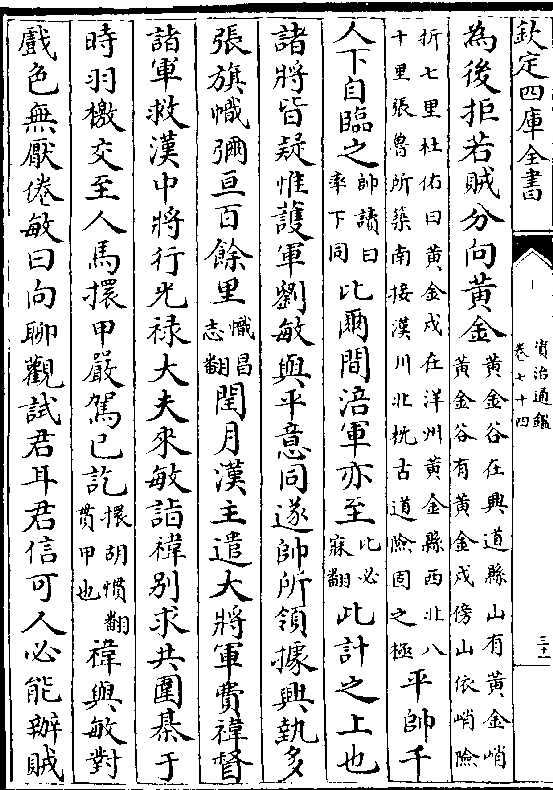 欽定四庫全書
資治通鑑
卷七十四
三十一
為後拒若賊分向黃金黃金谷在興道縣山有黃金峭黃金谷有黃金戍傍山依峭險
折七里杜佑曰黃金戍在洋州黃金縣西北八十里張魯所築南接漢川北枕古道險固之極平帥千
人下自臨之帥讀曰率下同比爾間涪軍亦至比必寐翻此計之上也
諸將皆疑惟護軍劉敏與平意同遂帥所領據興埶多
張旗幟彌亘百餘里幟昌志翻閏月漢主遣大將軍費禕督
諸軍救漢中將行光祿大夫來敏詣禕別求共圍棊于
時羽檄交至人馬擐甲嚴駕已訖擐胡慣翻貫甲也禕與敏對
戲色無厭倦敏曰向聊觀試君耳君信可人必能辦賊